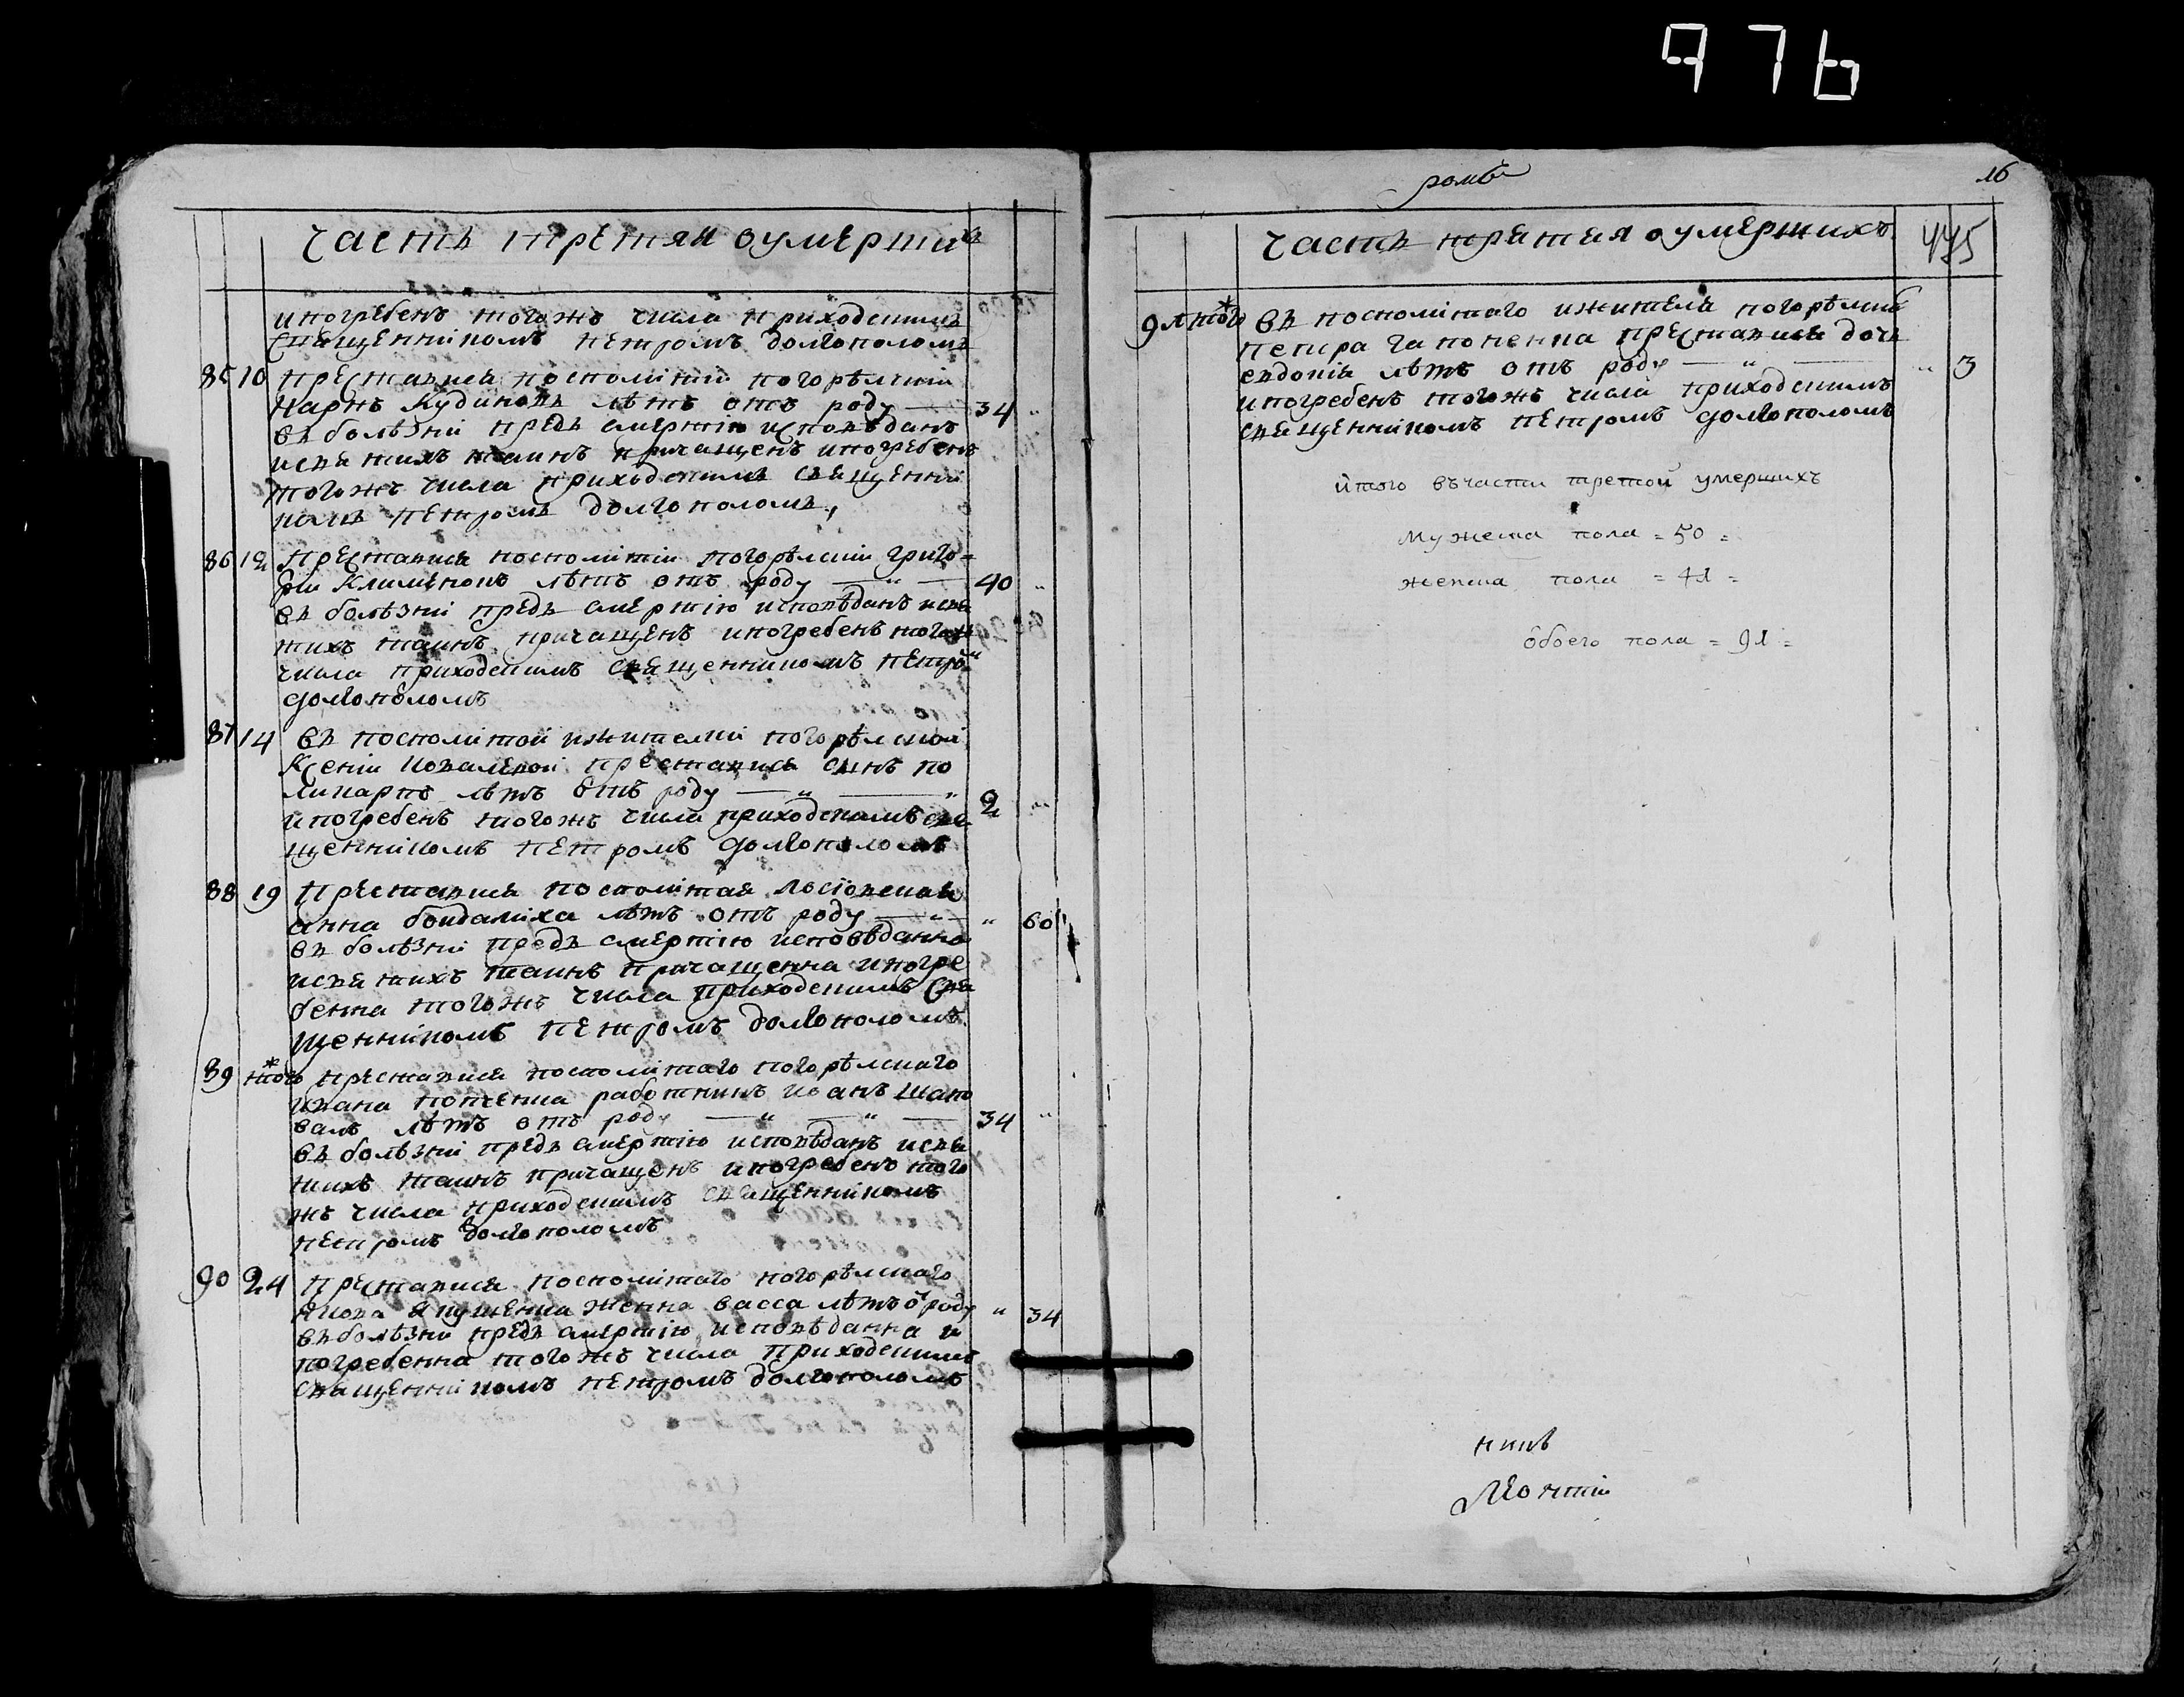 976
часть третяя оумерши^х
ипогребенъ тогожъ числа приходскимъ
Священнікомъ петромъ долгополомъ
85 10 Преставися посполітій погорѣлскій
Карпъ Кудиновъ лѣтъ отъ роду — 34 "
въ болѣзні предъ смертію исповѣданъ
исвятихъ таинъ причащенъ ипогребенъ
тогожъ числа приходскимъ священні
комъ петромъ долгополомъ,
86 12 Преставися посполітій погорѣлскій григо=
рій Клименокъ лѣтъ отъ роду — " — 40 "
въ болѣзні предъ смертію исповѣданъ исвя
тихъ таинъ причащенъ ипогребенъ тогож
числа приходскимъ священникомъ петро^м
долгополомъ
87 14 въ посполітой ижителки погорѣлской
Ксеніи Ковалевой преставися синъ по
ликарпъ лѣтъ отъ роду — " — " 2 "
ипогребенъ тогожъ числа приходскимъ свя
щеннікомъ петромъ долгополомъ
88 19 Преставися посполітая
анна бондаміха лѣтъ отъ роду — " — " 60
въ болѣзні предъ смертію исповѣданна
исвятихъ таинъ причащенна ипогре
бенна тогожъ числа приходскимъ Свя
щеннікомъ петромъ долгополомъ.
89 того^ж преставися посполітаго погорѣлскаго
ивана работникъ иванъ Шапо
валъ лѣтъ отъ роду — " — " — 34 "
въ болѣзні предъ смертію исповѣданъ исвя
тихъ таинъ причащенъ ипогребенъ того
жъ числа приходскимъ священнікомъ
петромъ долгополомъ
90 24 преставися посполітаго погорѣлскаго
Якова женна васса лѣтъ о^т роду " 34
въ болѣзни предъ смертію исповѣданна и
погребенна тогожъ числа приходскимъ
священнікомъ петромъ долгополомъ
16
часть третяя оумершихъ 445
91 того^ж въ посполітаго ижителя погорѣлска^г
петра гапоненка преставися дочь
евдокія лѣтъ отъ роду — " — " 3
ипогребенъ тогожъ числа приходскимъ
священнікомъ петромъ долгополомъ
итого въчасти третой умершихъ
мужеска пола = 50 =
женска пола = 41 =
обоего пола = 91 =